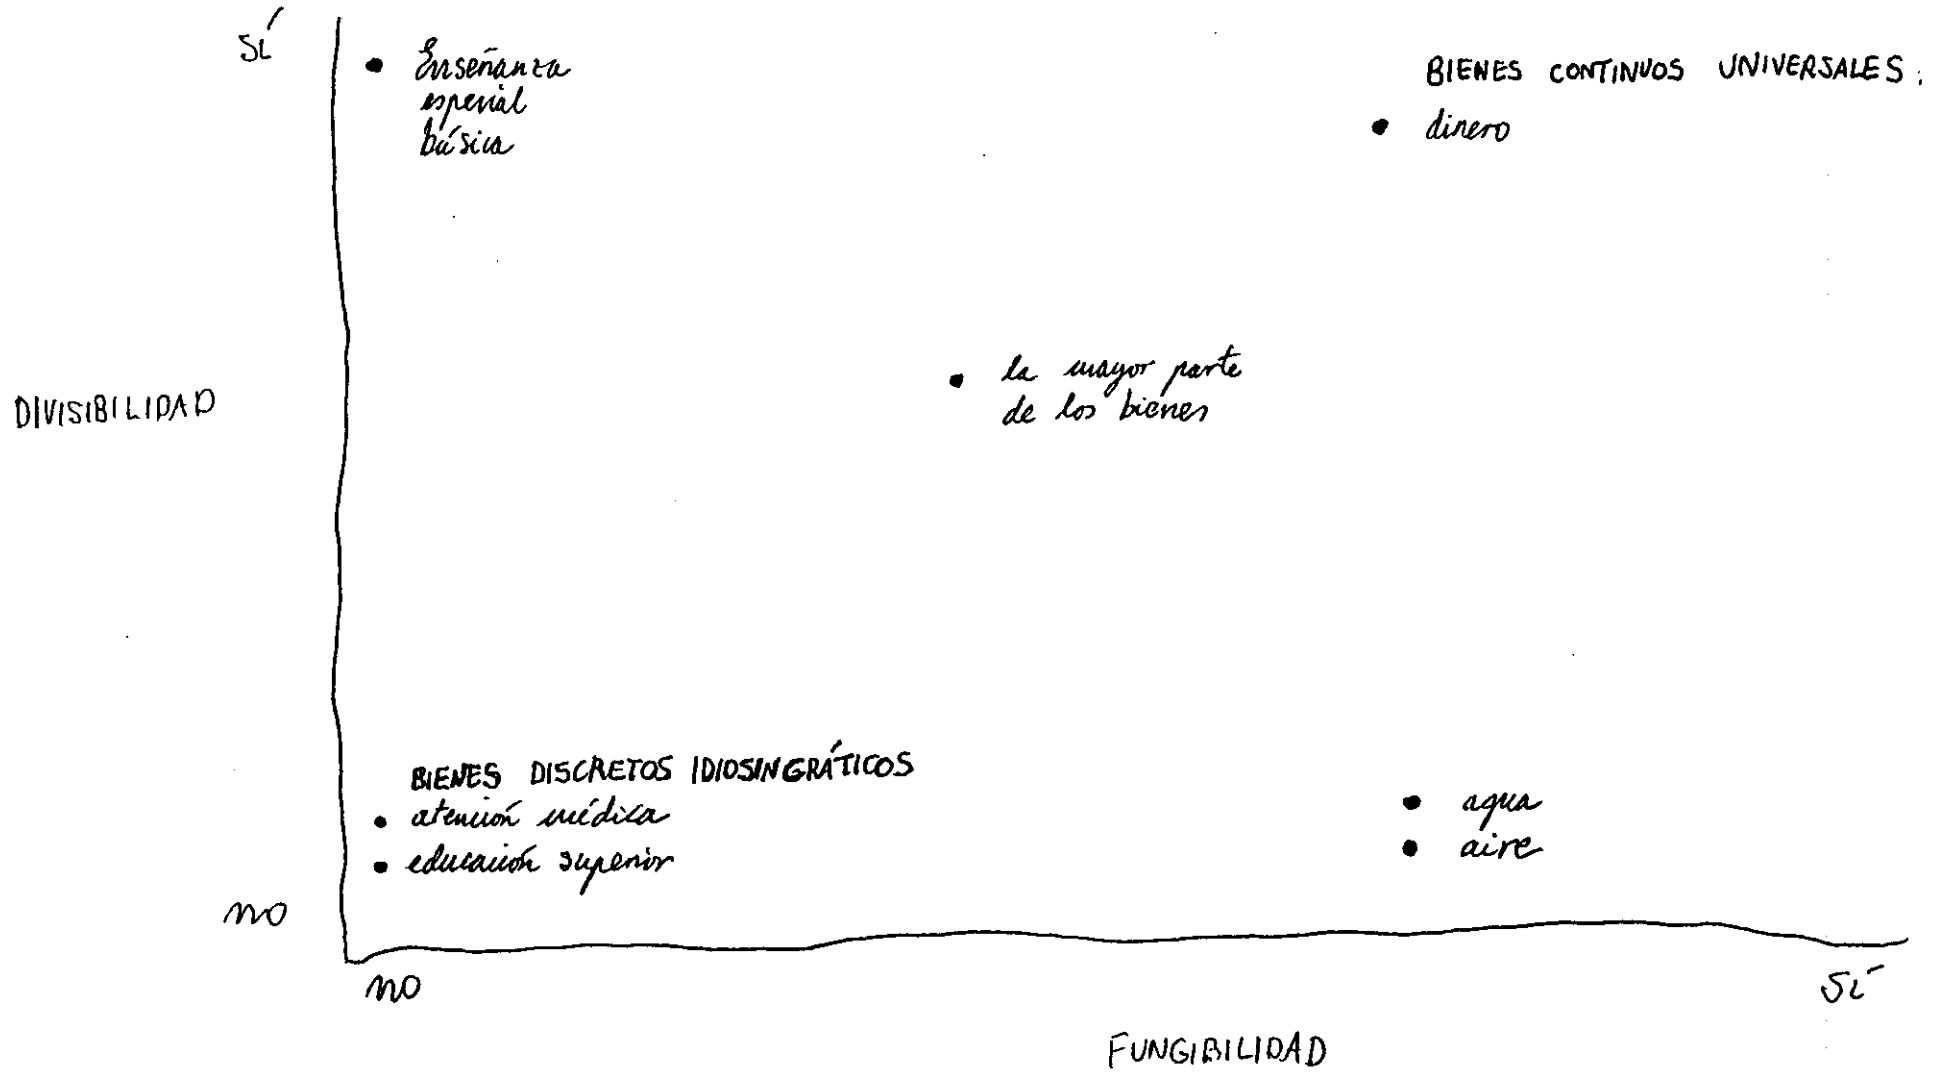 SÍ
Enseñanza
especial
básica
BIENES CONTINUOS UNIVERSALES:
dinero
DIVISIBILIDAD
la mayor parte
de los bienes
BIENES DISCRETOS IDIOSINGRÁTICOS
atención médica
educación superior
agua
aire
NO
NO
SÍ
FUNGIBILIDAD